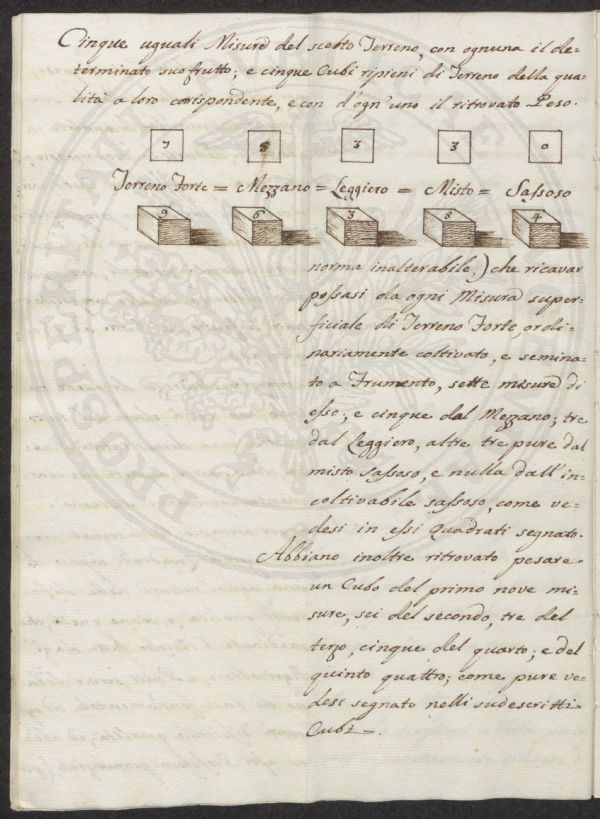 Cinque uguali Misure del scelto Terreno, con ognuna il de=
terminato suo frutto; e cinque Cubi ripieni di Terreno della qua=
lità a loro corispondente, e con d'ogn'uno il ritrovato Peso.
7 5 3 3 0
Terreno Forte = Mezzano = Leggiero = Misto = Saſsoso
9 6 3 5 4
norma inalterabile,) che ricavar
poſsasi da ogni Misura super=
ficiale di Terreno Forte, ordi=
nariamente coltivato, e semina=
to a Frumento, sette misure di
eſso; e cinque dal Mezzano; tre
dal Leggiero, altre tre pure dal
misto saſsoso, e nulla dall'in=
coltivabile saſsoso, come ve=
desi in eſsi Quadrati segnato.
Abbiano inoltre ritrovato pesare
un Cubo del primo nove mi=
sure, sei del secondo, tre del
terzo, cinque del quarto; e del
quinto quattro; come pure ve=
desi segnato nelli sudescritti
Cubi.